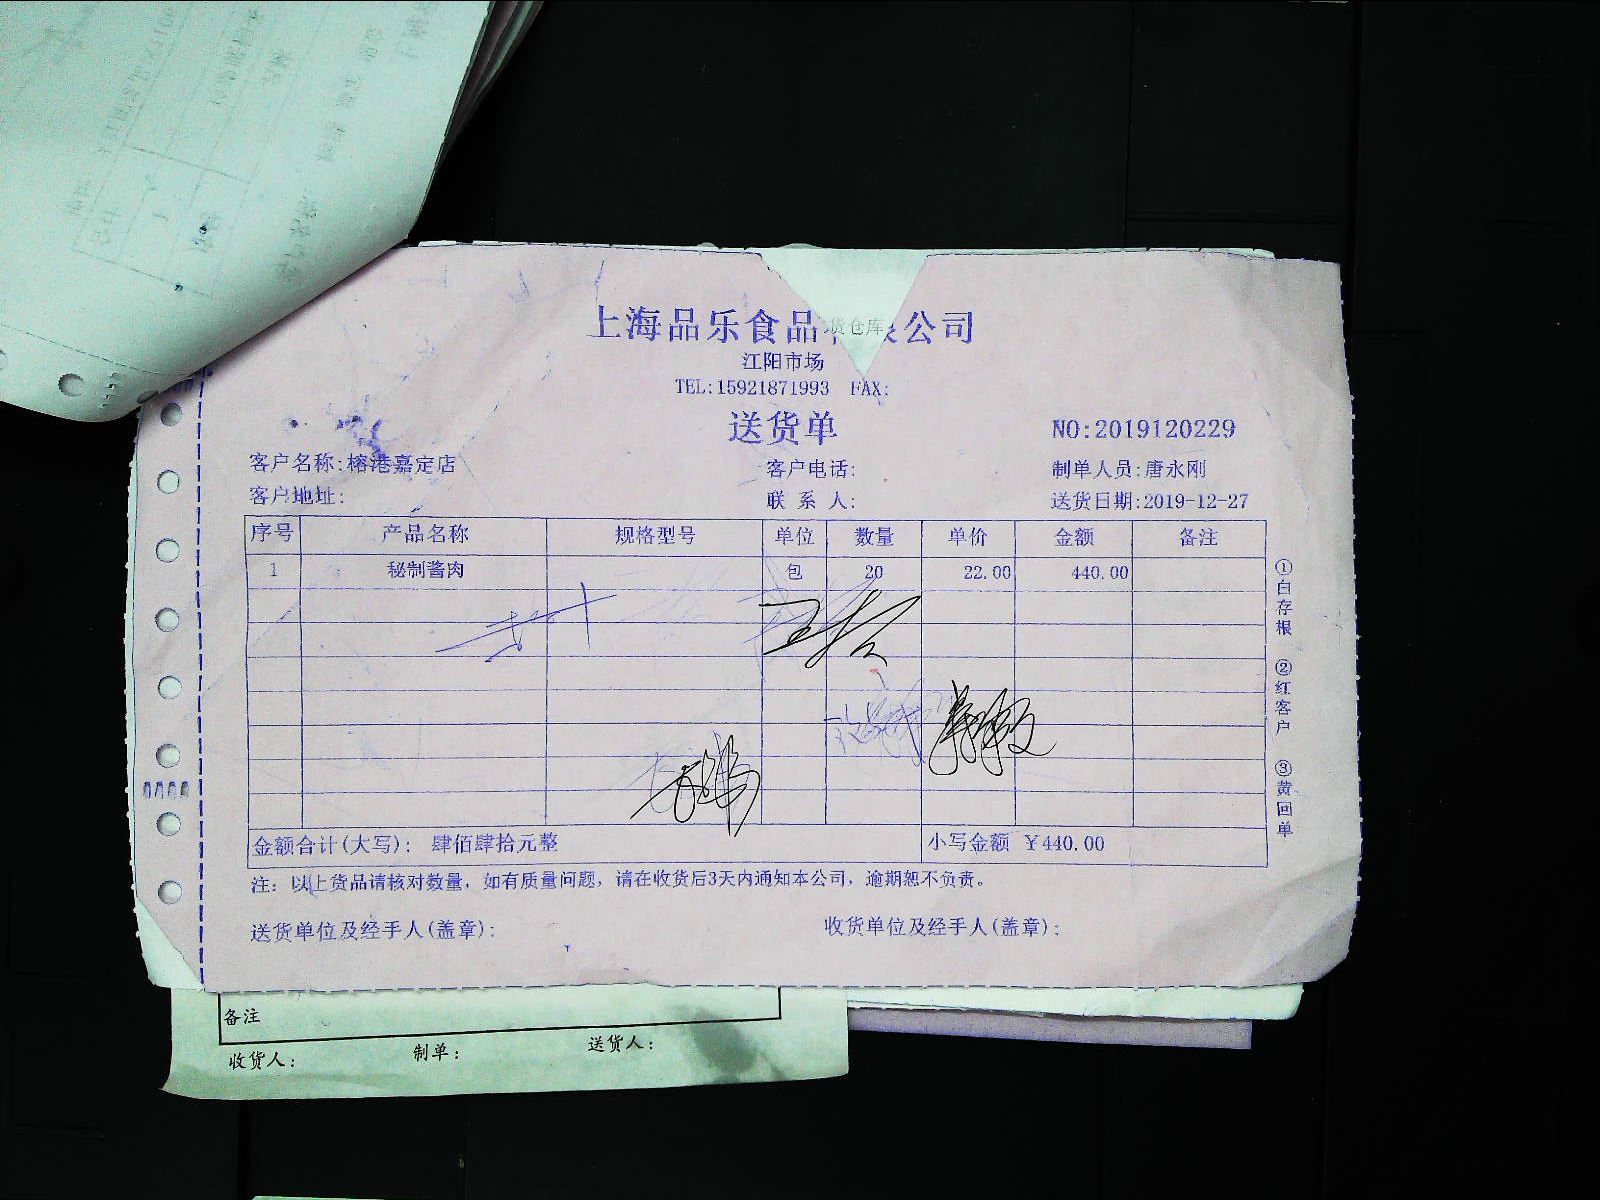 上海品乐食品 公司
货仓库
江阳市场
TEL:15921871993 FAX:
送货单
NO:2019120229
客户名称:榕港嘉定店 客户电话: 制单人员:唐永刚
客户地址: 联系人: 送货日期:2019-12-27
序号 产品名称 规格型号 单位 数量 单价 金额 备注
1 秘制酱肉 包 20 22.00 440.00
金额合计(大写): 肆佰肆拾元整 小写金额 ￥440.00
注: 以上货品请核对数量, 如有质量问题, 请在收货后3天内通知本公司, 逾期恕不负责。
送货单位及经手人(盖章): 收货单位及经手人(盖章):
①白存根 ②红客户 ③黄回单
备注
收货人: 制单: 送货人: